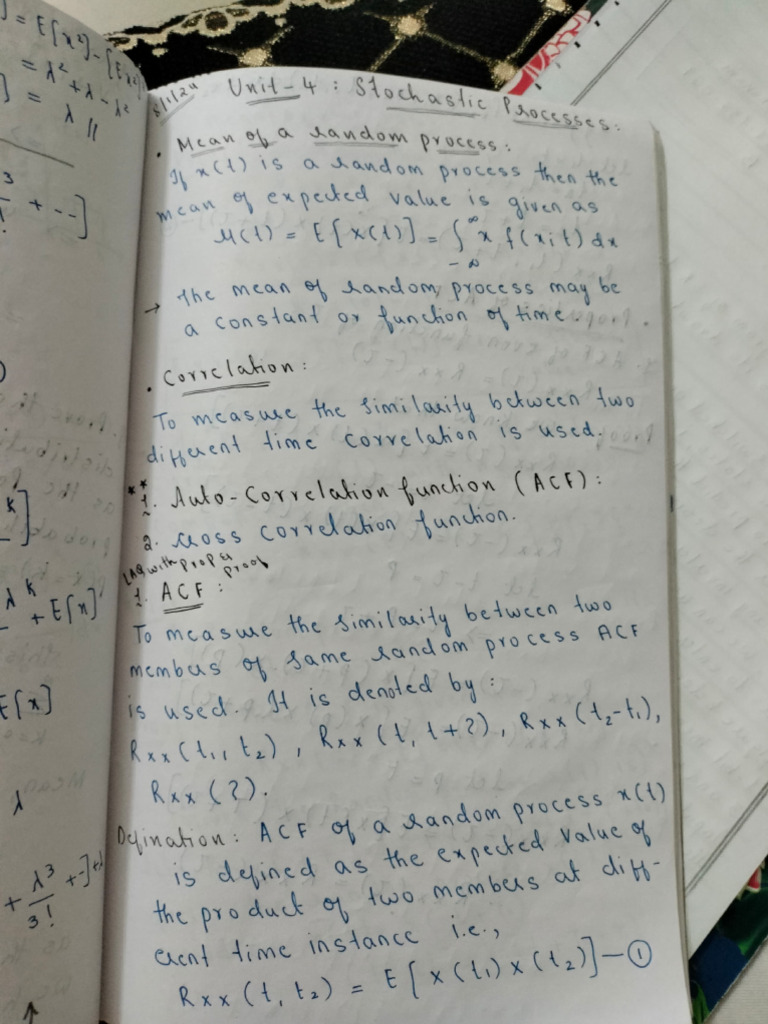 ] = E[x²] - [E
= λ² + λ - λ²
] = λ //
+ --]
k]
λ^k + E[x]
E[x]
λ
+ λ³/3! + -]
Unit-4 : Stochastic Processes:
• Mean of a random process:
If x(t) is a random process then the
mean of expected value is given as
μ(t) = E[x(t)] = ∫_{-∞}^{∞} x f(x;t) dx
→ The mean of random process may be
a constant or function of time.
• Correlation:
To measure the similarity between two
different time correlation is used.
** 1. Auto-Correlation function (ACF):
2. cross correlation function.
LAQ with prop & proof
1. ACF:
To measure the similarity between two
members of same random process ACF
is used. It is denoted by:
Rxx(t₁, t₂), Rxx(t, t+?), Rxx(t₂-t₁),
Rxx(?).
Defination: ACF of a random process x(t)
is defined as the expected value of
the product of two members at diff-
erent time instance i.e.,
Rxx(t, t₂) = E[x(t₁) x(t₂)] — ①